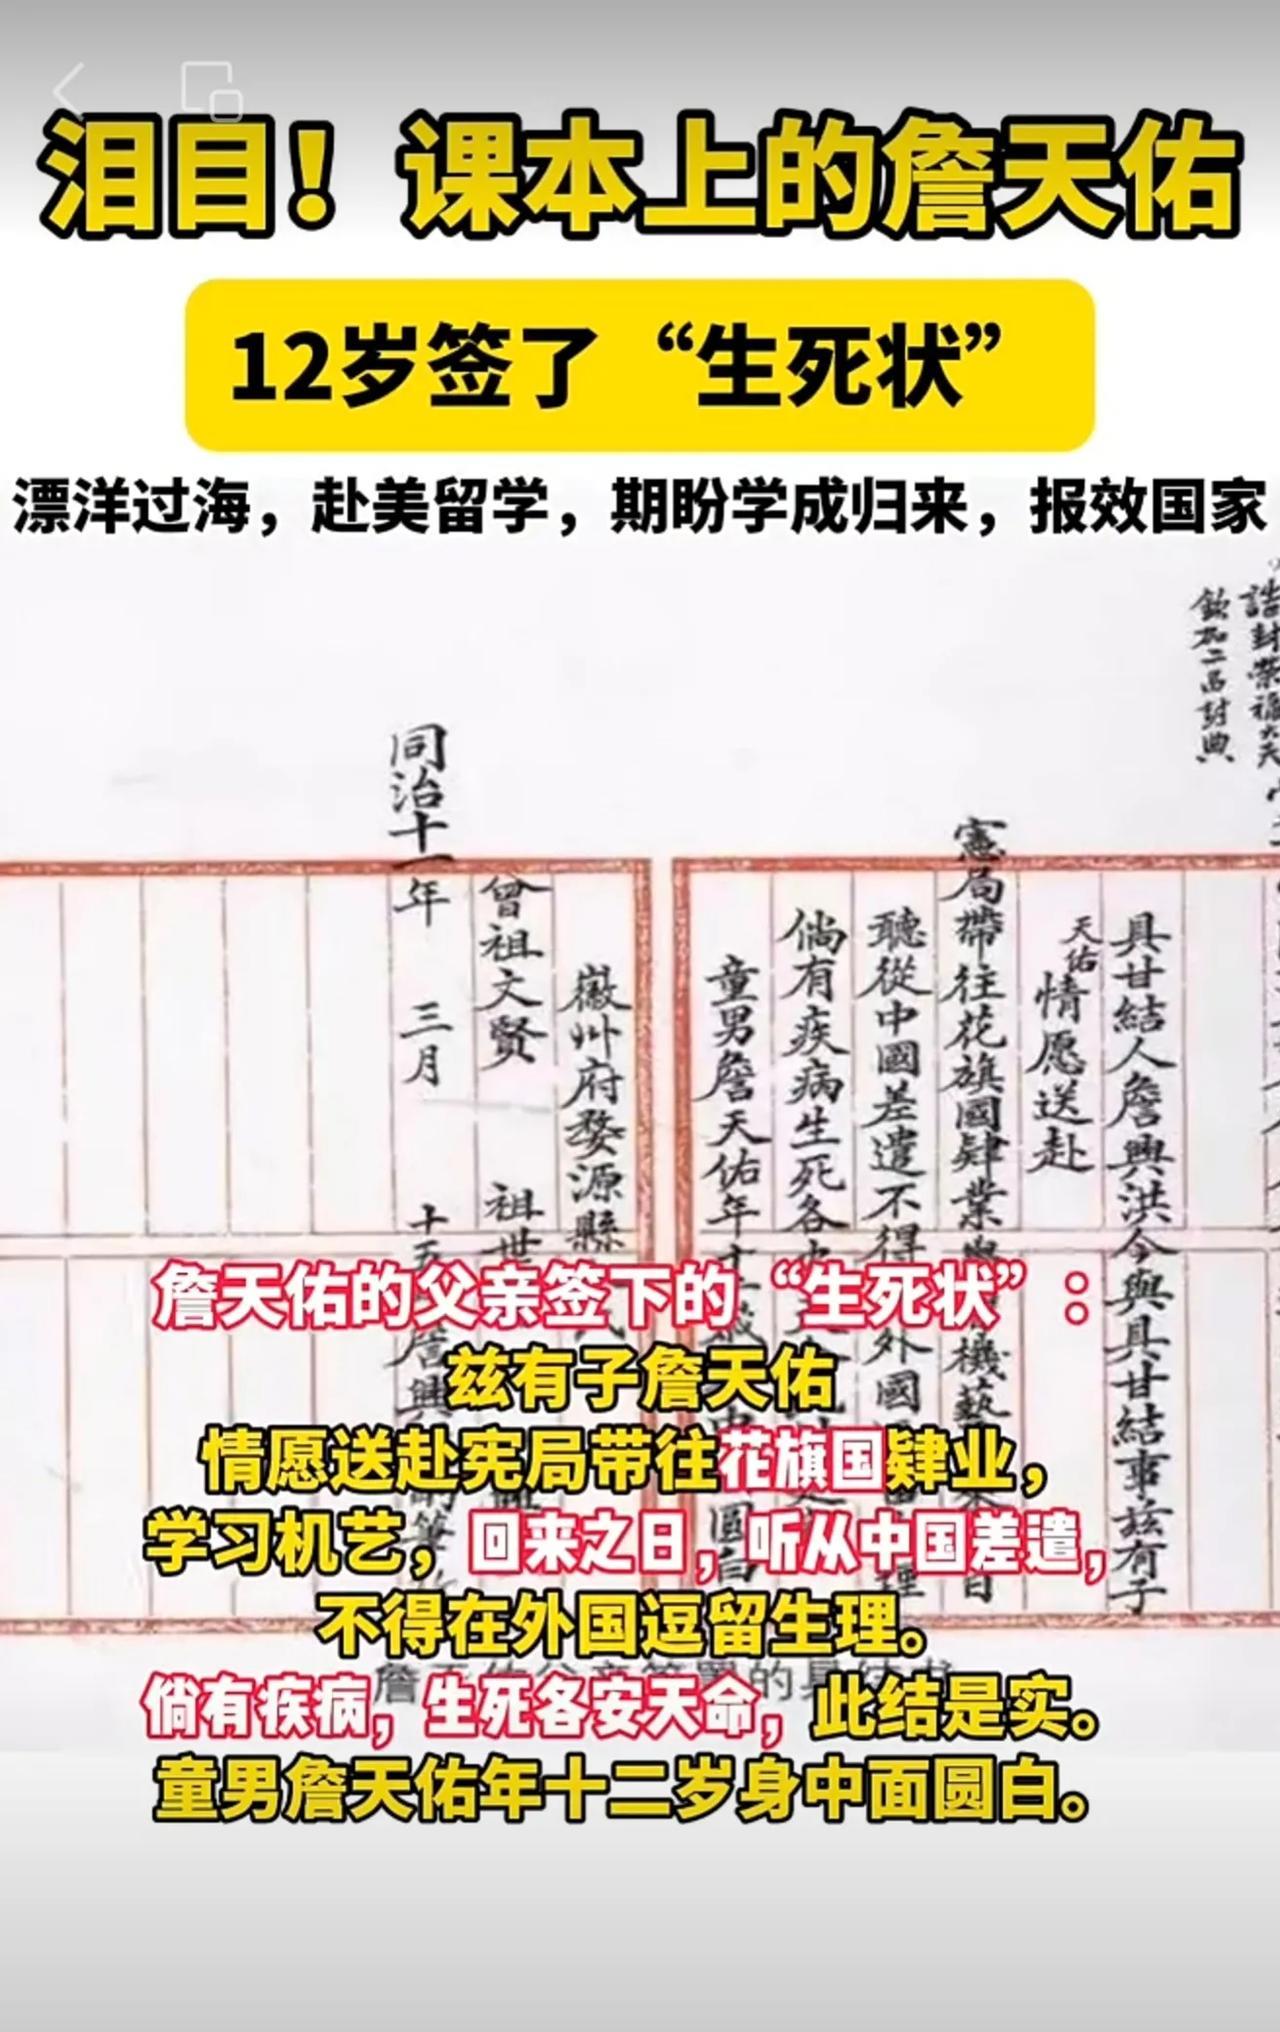 泪目！课本上的詹天佑
12岁签了“生死状”
漂洋过海，赴美留学，期盼学成归来，报效国家
誥封榮禄大夫
欽加二品封典
具甘結人詹興洪今與具甘結事兹有子
天佑情愿送赴
憲局帶往花旗國肄業 機藝
聽從中國差遣不得 外國 理
倘有疾病生死各
童男詹天佑年十二歲 圓白
徽州府婺源縣
曾祖文賢 祖世
同治十一年 三月 十五 詹興
詹天佑的父亲签下的“生死状”：
兹有子詹天佑
情愿送赴宪局带往花旗国肄业，
学习机艺，回来之日，听从中国差遣，
不得在外国逗留生理。
倘有疾病，生死各安天命，此结是实。
童男詹天佑年十二岁身中面圆白。